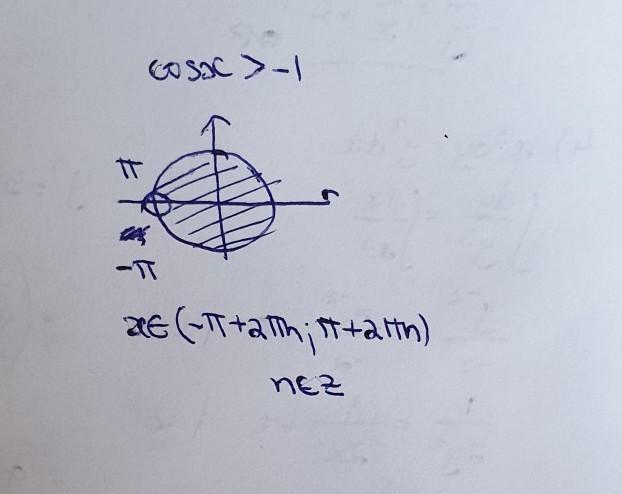 cosx > -1
π
-π
x∈(-π+2πn; π+2πn)
n∈Z